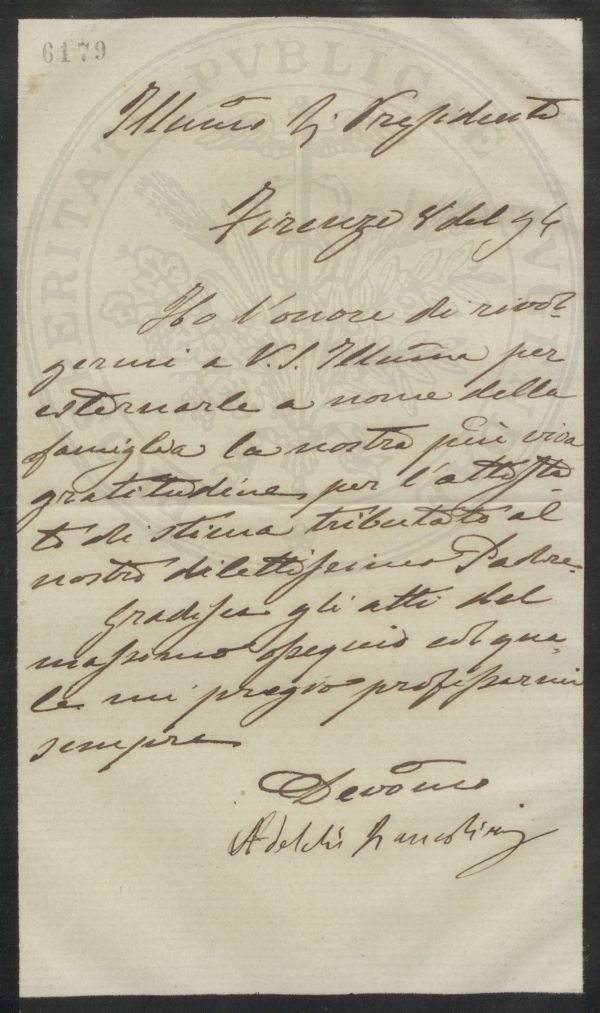 6179
Illmo Sig. Presidente
Firenze 8 del 94
Ho l'onore di rivol-
germi a V. S. Illma per
esternarle a nome della
famiglia la nostra più viva
gratitudine per l'attesta
to di stima tributato al
nostro dilettissimo Padre.
Gradisca gli atti del
massimo ossequio col qua-
le mi pregio professarmi
sempre
Devmo
Adelchi